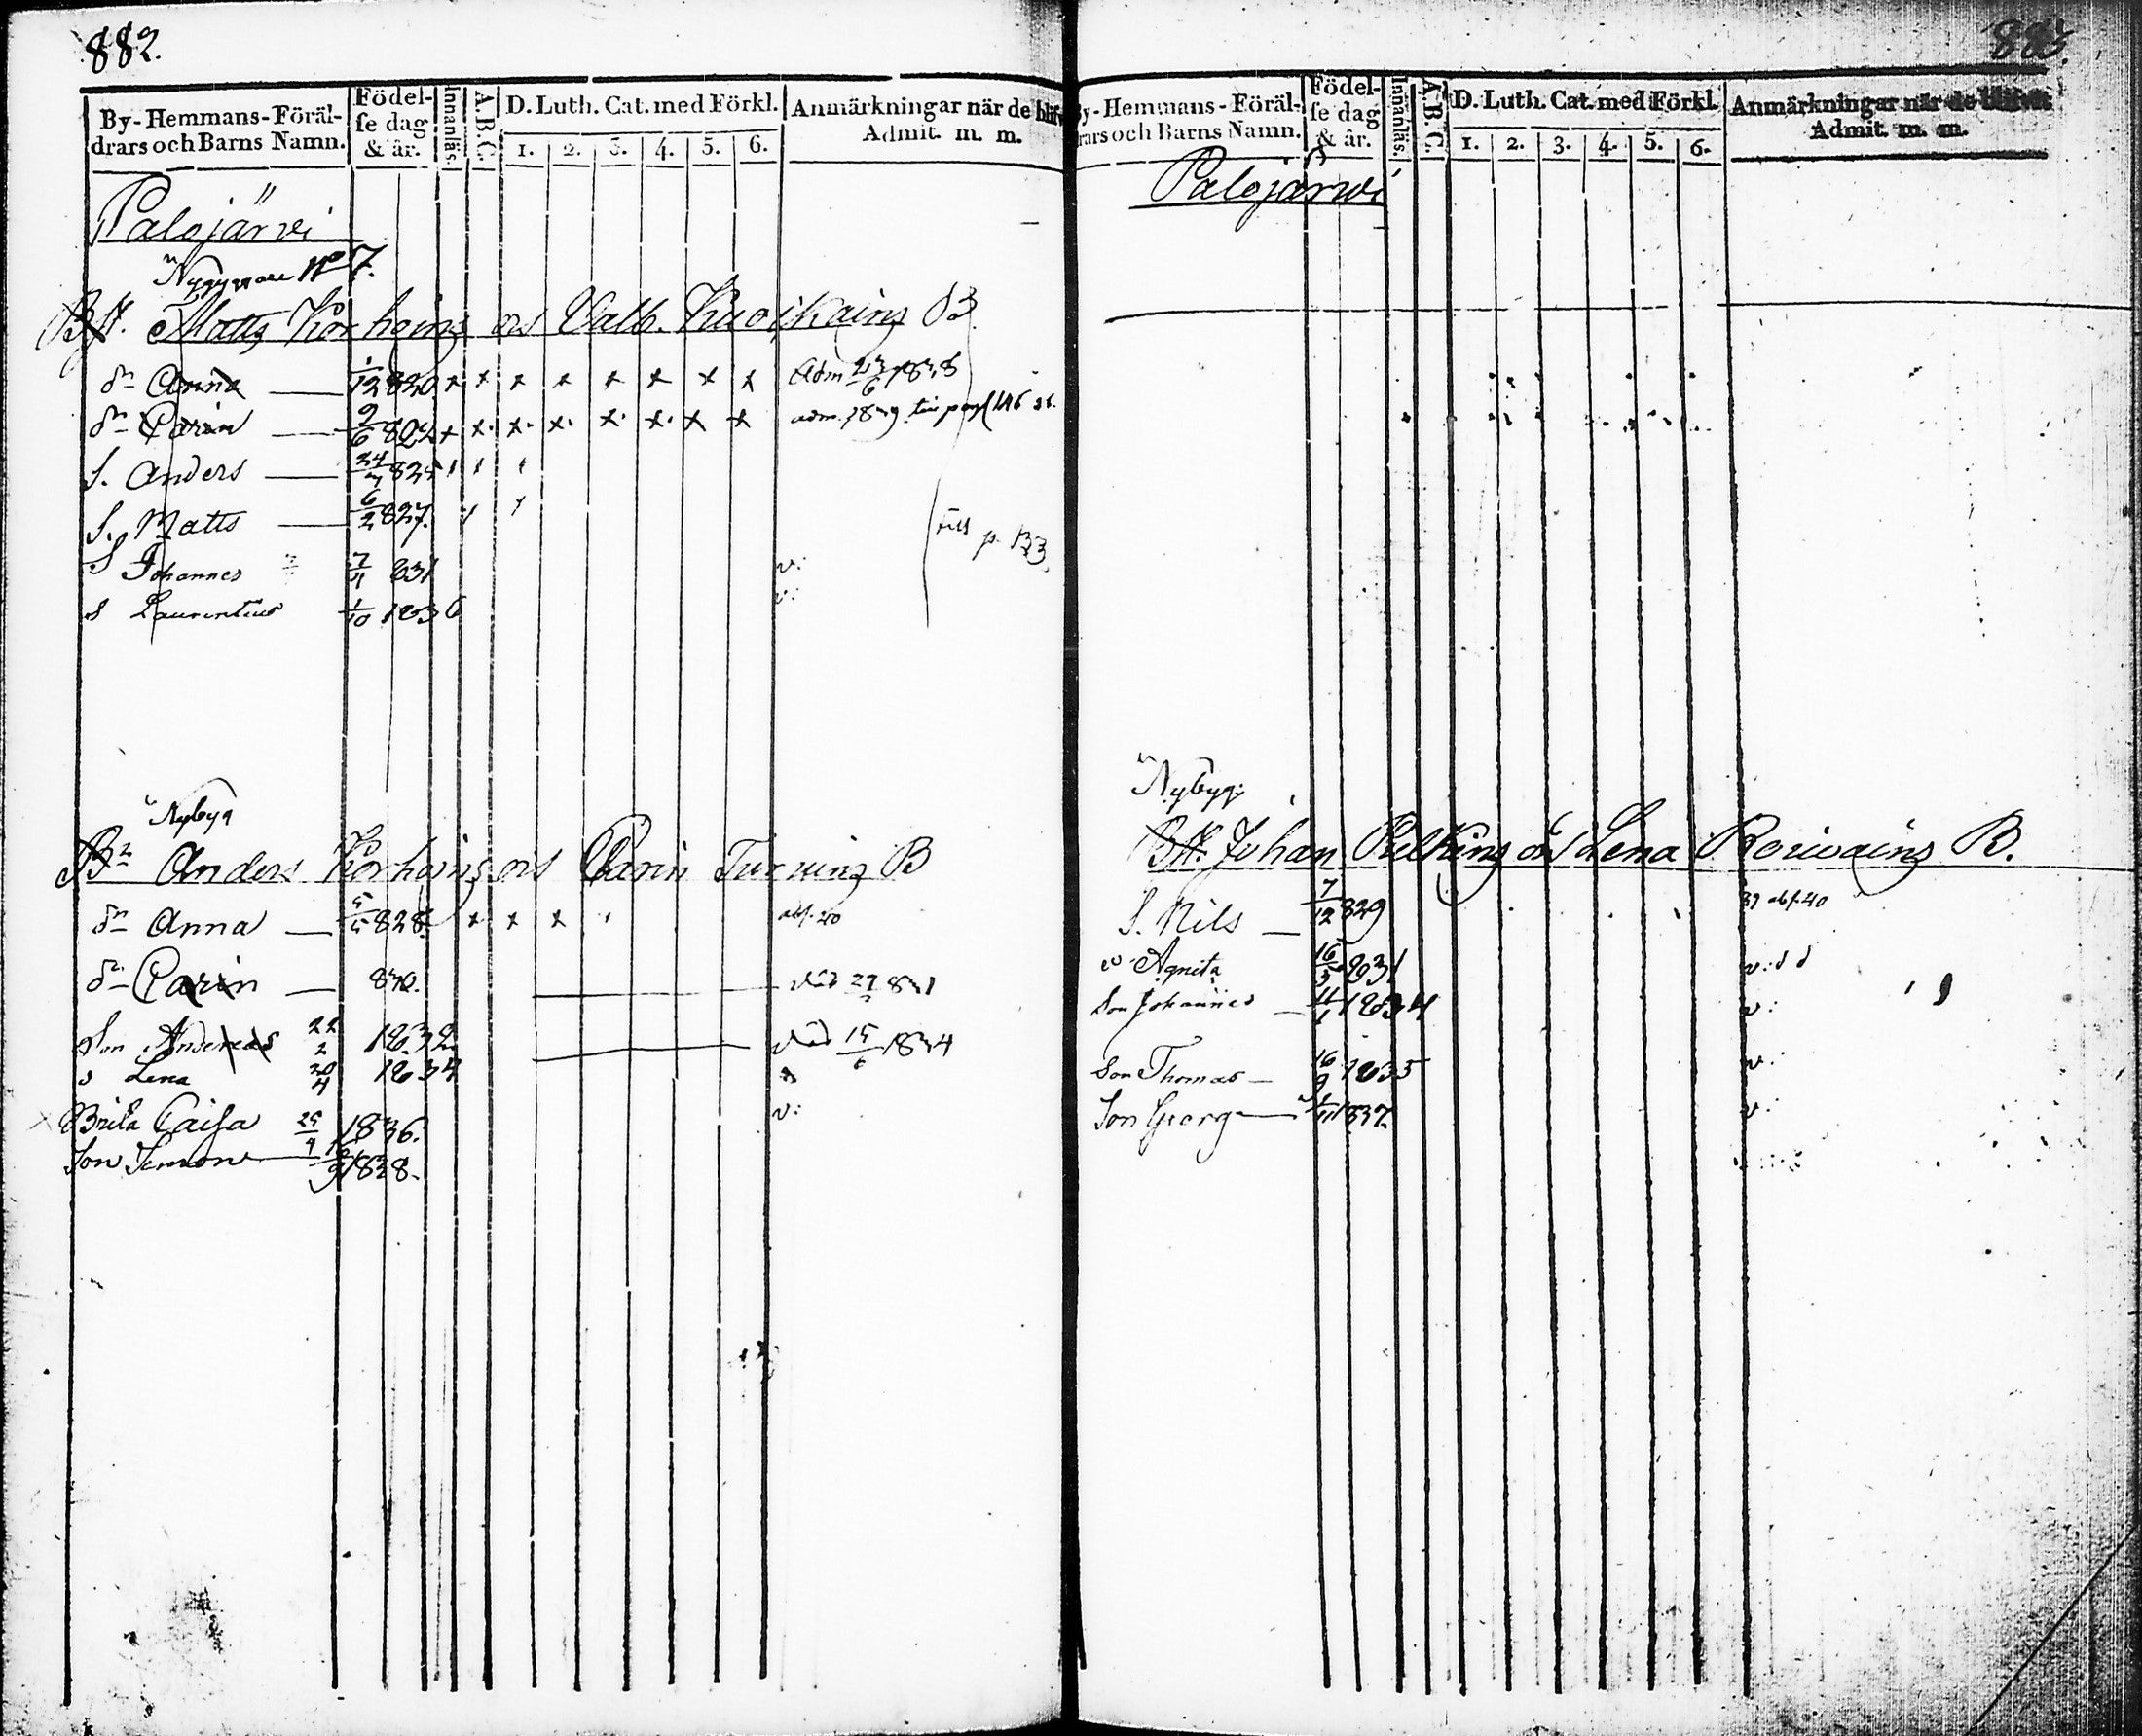 882.
By-Hemmans-Föräl-drars och Barns Namn. Födel-se dag & år. Innanläs. A.B.C. D. Luth. Cat. med Förkl. 1. 2. 3. 4. 5. 6. Anmärkningar när de blifv Admit. m. m.
Palojärvi
No 7.
Matts Korhoinz os Valb. Kuoikainz B.
dr Anna 1/12 820. x x x x x x x x Adm 23/6 1838
dr Carin 9/6 822 x x. x. x. x. x. x x adm. 1839.
S. Anders 24/7 825
S. Matts 6/2 827.
till p. 133
S Johannes 7/11 831 v:
S Laurentius 1/10 1836 v:
Nybyg
Anders Korhoinz os Carin Turuinz B
dr Anna 5/5 828. x x x abs. 40
dr Carin 830. död 831
Son Andereas 22/2 1832 död 15/6 1834
d Lena 20/4 1834
Brita Caisa 25/4 1836. v:
Son Simon 1838.
883.
By-Hemmans-Föräl-drars och Barns Namn. Födel-se dag & år. Innanläs. A.B.C. D. Luth. Cat. med Förkl. 1. 2. 3. 4. 5. 6. Anmärkningar när de blifvit Admit. m. m.
Palojärvi
Nybyg:
Johan Pelkinz os Lena B.
S. Nils 7/12 829 39 abs. 40
Agnita 16/3 831 v:
Son Johannes 11/1 1834 v:
Son Thomas 16/9 1835 v:
Son Georg 1837 v: